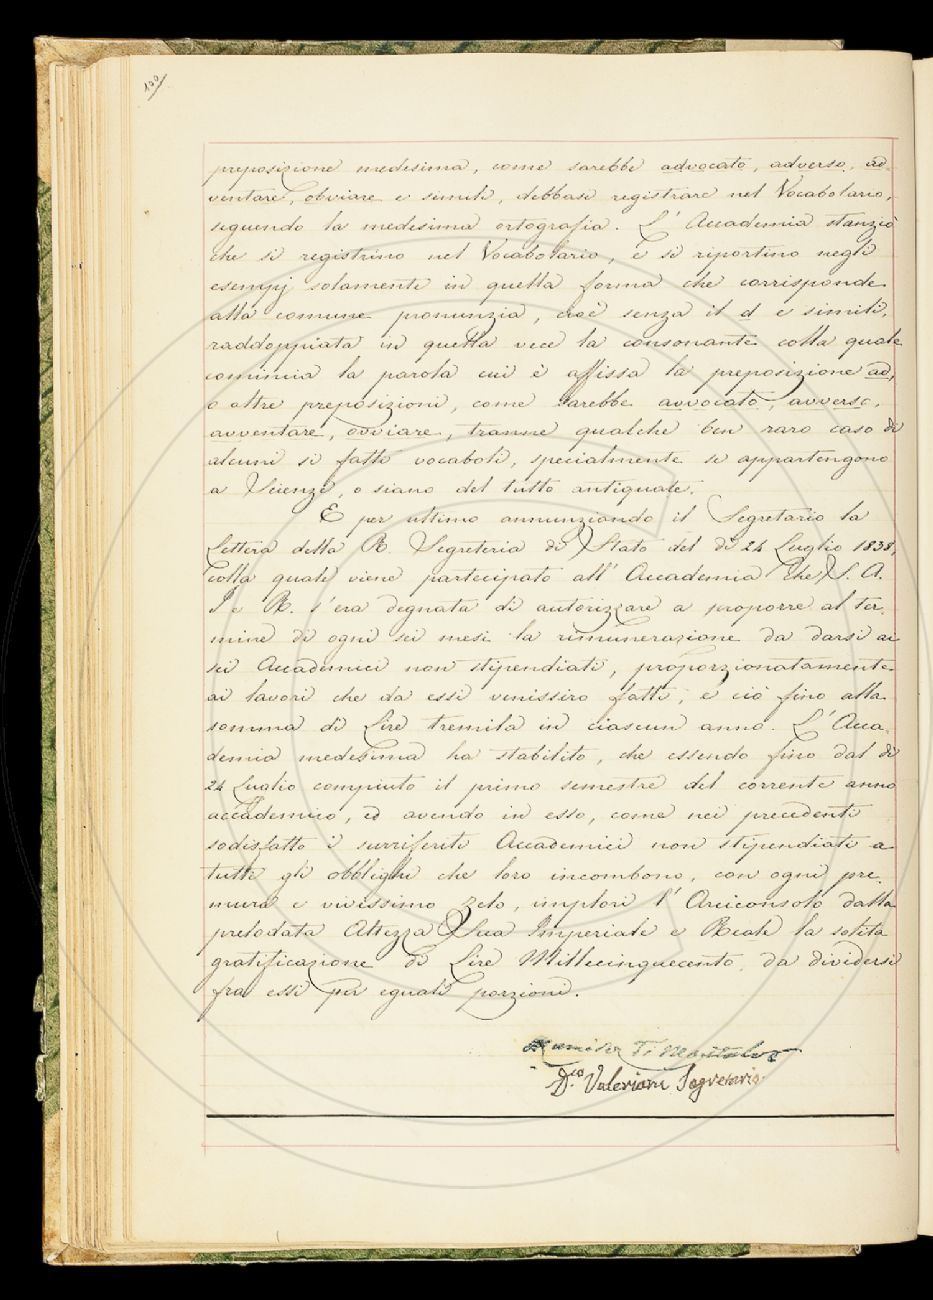 100
preposizione medesima, come sarebbe advocato, adverso, ad-
ventare, obviare e simili, debbasi registrare nel Vocabolario,
seguendo la medesima ortografia. L' Accademia stanziò
che si registrino nel Vocabolario, e si riportino negli
esempj solamente in quella forma che corrisponde
alla comune pronunzia, cioè senza il d e simili,
raddoppiata in quella vece la consonante colla quale
comincia la parola cui è affissa la preposizione ad,
o altre preposizioni, come sarebbe avvocato, avverso,
avventare, ovviare, tranne qualche ben raro caso di
alcuni sì fatti vocaboli, specialmente se appartengono
a Scienze, o siano del tutto antiquate.
E per ultimo annunziando il Segretario la
Lettera della R. Segreteria di Stato del dì 24 Luglio 1838,
colla quale viene partecipato all' Accademia che S. A.
I e R. s'era degnata di autorizzare a proporre al ter-
mine di ogni sei mesi la rimunerazione da darsi ai
sei Accademici non stipendiati, proporzionatamente
ai lavori che da essi venissiro fatti, e ciò fino alla
somma di Lire tremila in ciascun anno. L' Acca-
demia medesima ha stabilito, che essendo fino dal dì
24 Luglio compiuto il primo semestre del corrente anno
accademico, ed avendo in esso, come nei precedenti
sodisfatto i surriferiti Accademici non stipendiati a
tutti gli obblighi che loro incombono, con ogni pre-
mura e vivissimo zelo, implori l' Arciconsolo dalla
prelodata Altezza Sua Imperiale e Reale la solita
gratificazione di Lire Millecinquecento da dividersi
fra essi per eguali porzioni.
Dco Valeriani Segretario